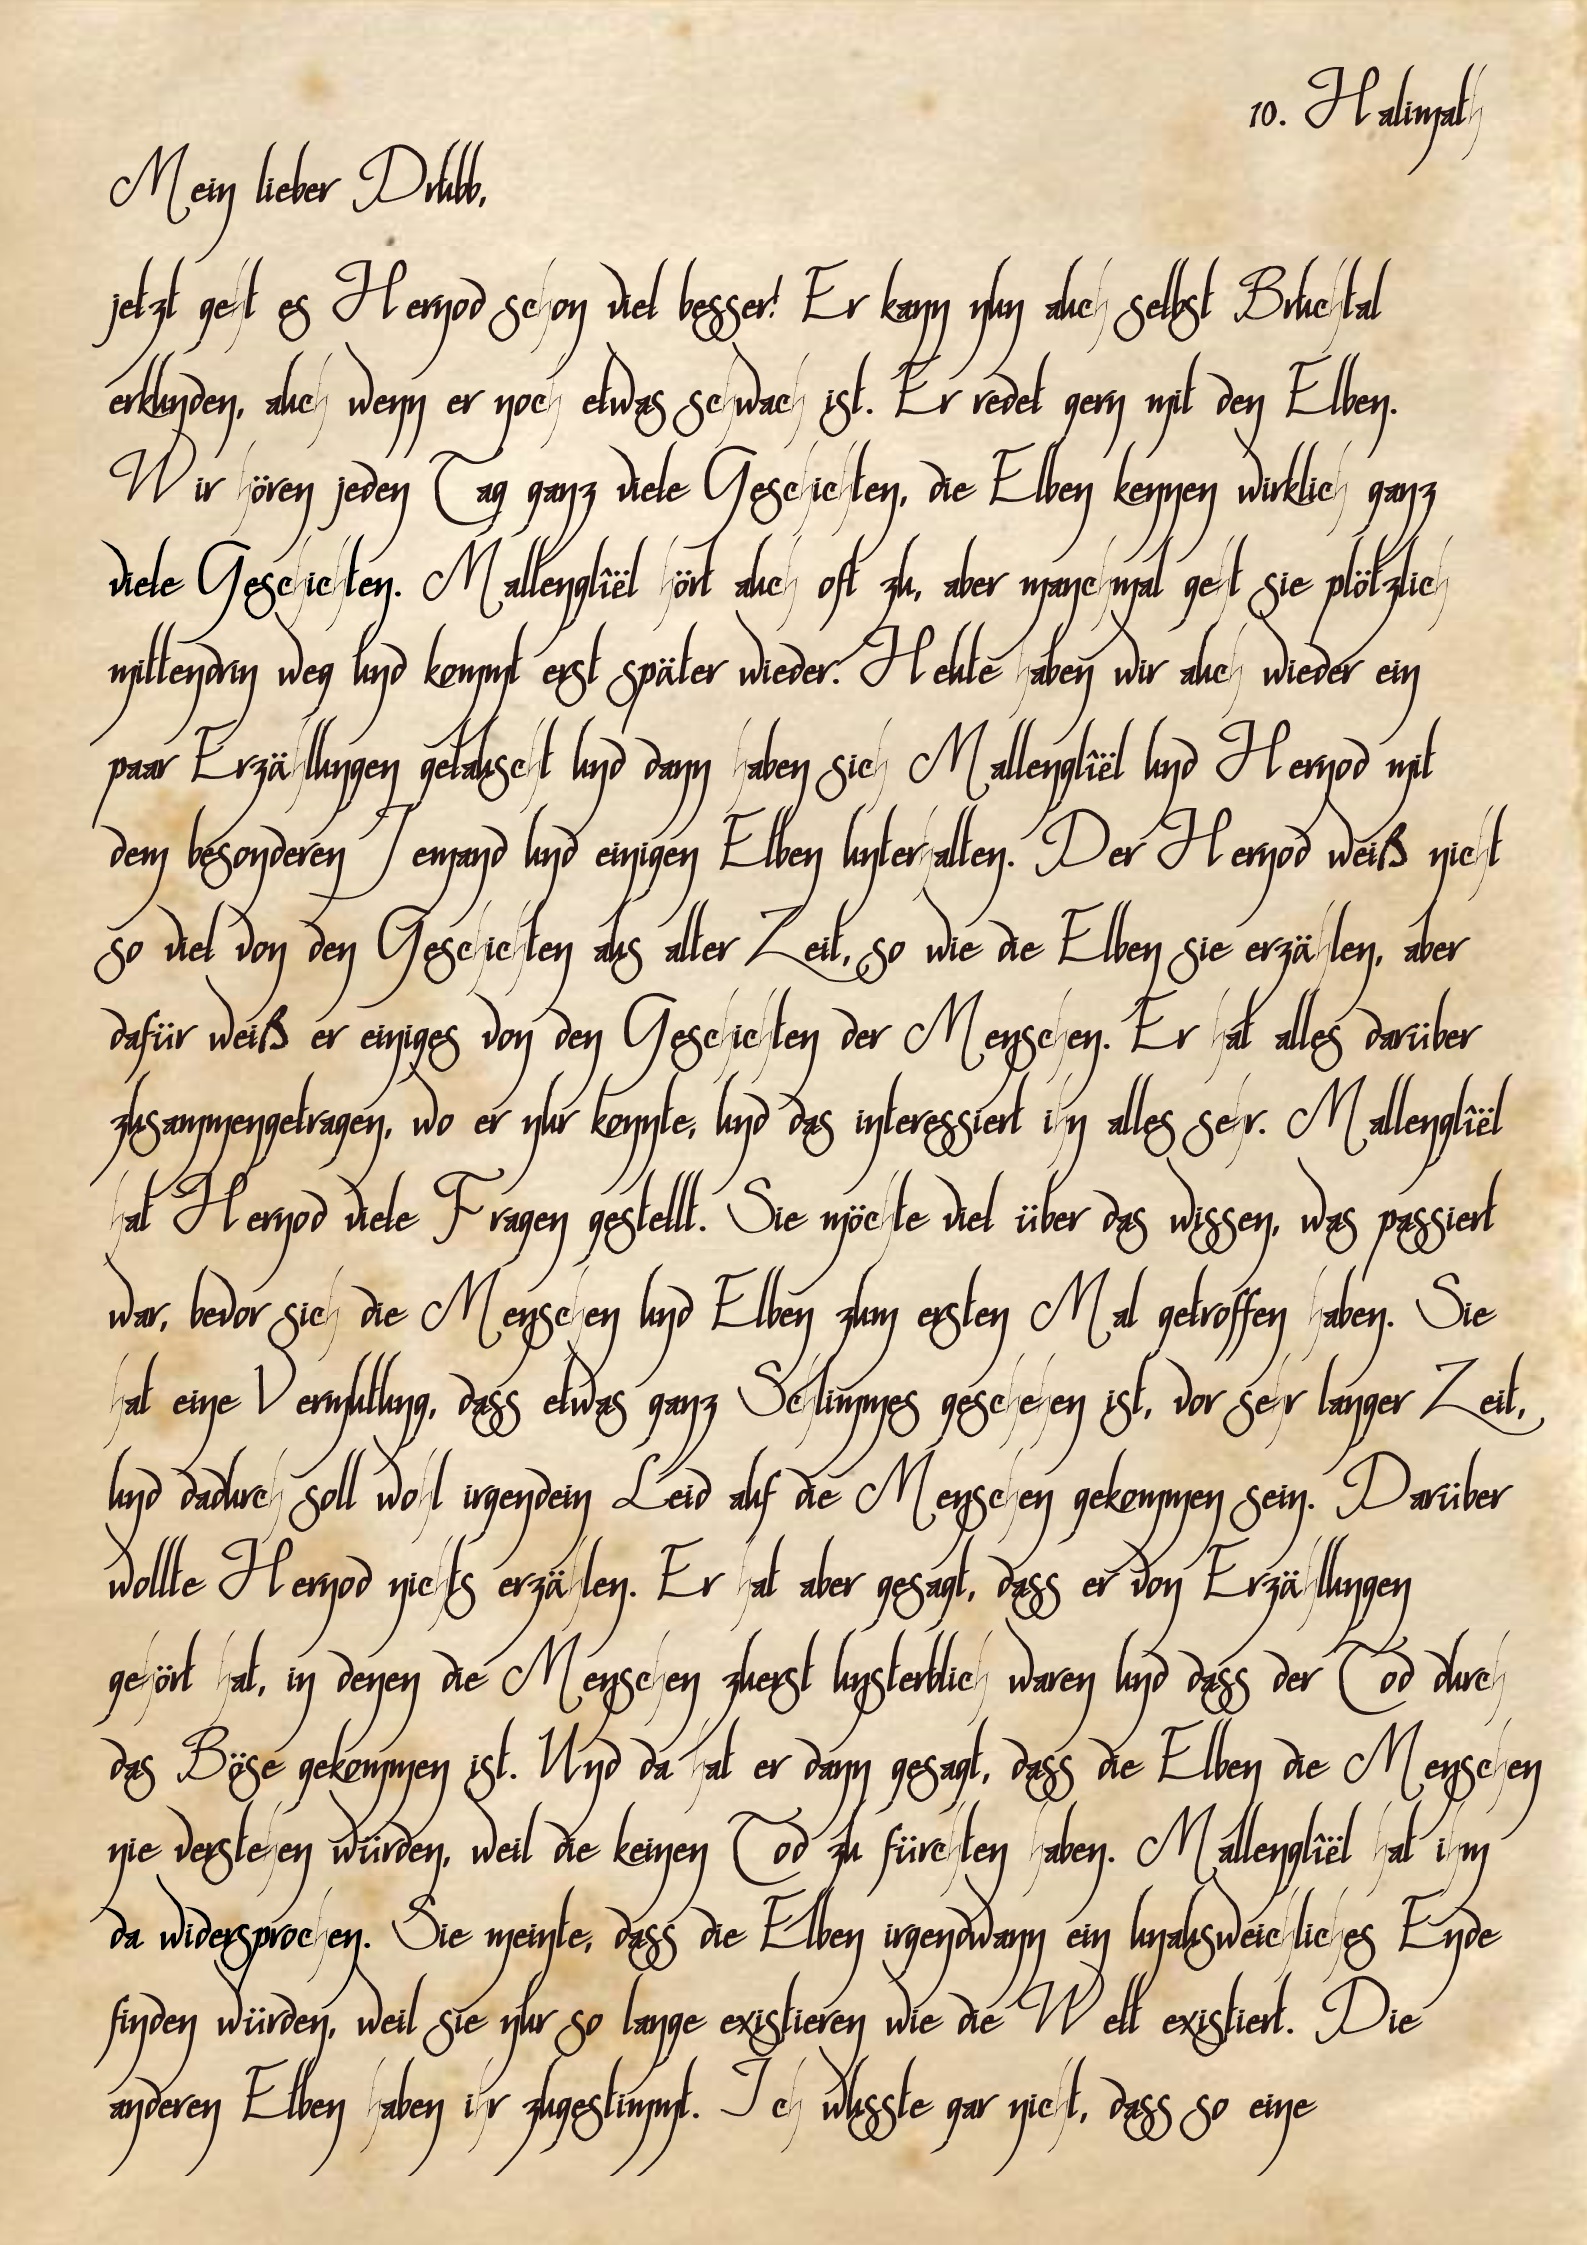 10. Halimath
Mein lieber Drubb,
jetzt geht es Hernod schon viel besser! Er kann nun auch selbst Bruchtal
erkunden, auch wenn er noch etwas schwach ist. Er redet gern mit den Elben.
Wir hören jeden Tag ganz viele Geschichten, die Elben kennen wirklich ganz
viele Geschichten. Mallenglîël hört auch oft zu, aber manchmal geht sie plötzlich
mittendrin weg und kommt erst später wieder. Heute haben wir auch wieder ein
paar Erzählungen getauscht und dann haben sich Mallenglîël und Hernod mit
dem besonderen Jemand und einigen Elben unterhalten. Der Hernod weiß nicht
so viel von den Geschichten aus alter Zeit, so wie die Elben sie erzählen, aber
dafür weiß er einiges von den Geschichten der Menschen. Er hat alles darüber
zusammengetragen, wo er nur konnte, und das interessiert ihn alles sehr. Mallenglîël
hat Hernod viele Fragen gestellt. Sie möchte viel über das wissen, was passiert
war, bevor sich die Menschen und Elben zum ersten Mal getroffen haben. Sie
hat eine Vermutung, dass etwas ganz Schlimmes geschehen ist, vor sehr langer Zeit,
und dadurch soll wohl irgendein Leid auf die Menschen gekommen sein. Darüber
wollte Hernod nichts erzählen. Er hat aber gesagt, dass er von Erzählungen
gehört hat, in denen die Menschen zuerst unsterblich waren und dass der Tod durch
das Böse gekommen ist. Und da hat er dann gesagt, dass die Elben die Menschen
nie verstehen würden, weil die keinen Tod zu fürchten haben. Mallenglîël hat ihm
da widersprochen. Sie meinte, dass die Elben irgendwann ein unausweichliches Ende
finden würden, weil sie nur so lange existieren wie die Welt existiert. Die
anderen Elben haben ihr zugestimmt. Ich wusste gar nicht, dass so eine